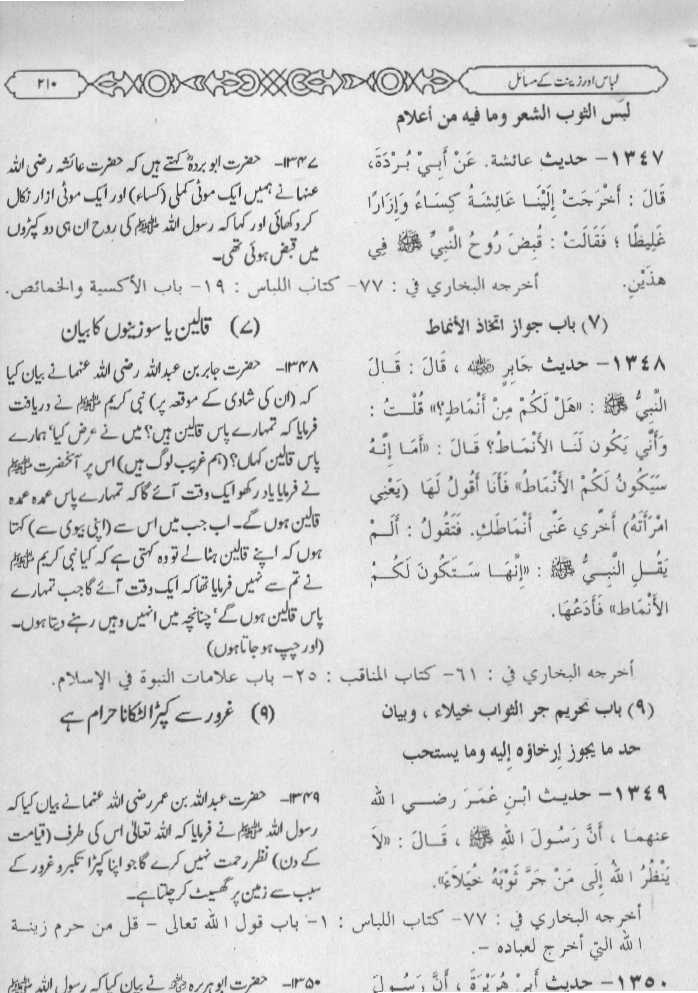 لباس اور زینت کے مسائل
۲۱۰
لبس الثوب الشعر وما فيه من أعلام
١٣٤٧- حديث عائشة. عَنْ أَبِيْ بُرْدَةَ،
قَالَ : أَخْرَجَتْ إِلَيْنَا عَائِشَةُ كِسَاءً وَإِزَارًا
غَلِيظًا ؛ فَقَالَتْ : قُبِضَ رُوحُ النَّبِيِّ ﷺ فِي
هذَيْنِ.
۱۳۴۷- حضرت ابو بردہؓ کہتے ہیں کہ حضرت عائشہ رضی اللہ
عنہا نے ہمیں ایک موٹی کملی (کساء) اور ایک موٹی ازار نکال
کر دکھائی اور کہا کہ رسول اللہ ﷺ کی روح ان ہی دو کپڑوں
میں قبض ہوئی تھی۔
أخرجه البخاري في : ٧٧- كتاب اللباس : ١٩- باب الأكسية والخمائص.
(٧) باب جواز اتخاذ الأنماط
(۷) قالین یا سوزنیوں کا بیان
١٣٤٨- حديث جَابِرٍ ﷺ ، قَالَ : قَالَ
النَّبِيُّ ﷺ : «هَلْ لَكُمْ مِنْ أَنْمَاطٍ؟» قُلْتُ :
وَأَنِّي يَكُون لَنَا الأَنْمَاطُ؟ قَالَ : «أَمَا إِنَّهُ
سَيَكُونُ لَكُمُ الأَنْمَاطُ» فَأَنَا أَقُولُ لَهَا (يَعْنِي
امْرَأَتَهُ) أَخِّرِي عَنِّى أَنْمَاطَكِ. فَتَقُولُ : أَلَمْ
يَقُلِ النَّبِيُّ ﷺ : «إِنَّهَا سَتَكُونَ لَكُمُ
الأَنْمَاط» فَأَدَعُهَا.
۱۳۴۸- حضرت جابر بن عبداللہ رضی اللہ عنہما نے بیان کیا
کہ (ان کی شادی کے موقعہ پر) نبی کریم ﷺ نے دریافت
فرمایا کہ تمہارے پاس قالین ہیں؟ میں نے عرض کیا‘ ہمارے
پاس قالین کہاں؟ (ہم غریب لوگ ہیں) اس پر آنحضرت ﷺ
نے فرمایا یاد رکھو ایک وقت آئے گا کہ تمہارے پاس عمدہ عمدہ
قالین ہوں گے۔ اب جب میں اس سے (اپنی بیوی سے) کہتا
ہوں کہ اپنے قالین ہٹا لے تو وہ کہتی ہے کہ کیا نبی کریم ﷺ
نے تم سے نہیں فرمایا تھا کہ ایک وقت آئے گا جب تمہارے
پاس قالین ہوں گے‘ چنانچہ میں انہیں وہیں رہنے دیتا ہوں۔
(اور چپ ہو جاتا ہوں)
أخرجه البخاري في : ٦١- كتاب المناقب : ٢٥- باب علامات النبوة في الإسلام.
(٩) باب تحريم جر الثواب خيلاء ، وبيان
حد ما يجوز إرخاؤه إليه وما يستحب
(۹) غرور سے کپڑا لٹکانا حرام ہے
١٣٤٩- حديث ابْنِ عُمَرَ رضي الله
عنهما ، أَنَّ رَسُولَ اللهِ ﷺ ، قَالَ : «لاَ
يَنْظُرُ اللهُ إِلَى مَنْ جَرَّ ثَوْبَهُ خُيَلاَءَ».
۱۳۴۹- حضرت عبداللہ بن عمر رضی اللہ عنہما نے بیان کیا کہ
رسول اللہ ﷺ نے فرمایا کہ اللہ تعالیٰ اس کی طرف (قیامت
کے دن) نظر رحمت نہیں کرے گا جو اپنا کپڑا تکبر و غرور کے
سبب سے زمین پر گھسیٹ کر چلتا ہے۔
أخرجه البخاري في : ٧٧- كتاب اللباس : ١- باب قول الله تعالى - قل من حرم زينة
الله التي أخرج لعباده -.
١٣٥٠- حديث أَبِيْ هُرَيْرَةَ ، أَنَّ رَسُولَ
۱۳۵۰- حضرت ابو ہریرہ نے بیان کیا کہ رسول اللہ ﷺ